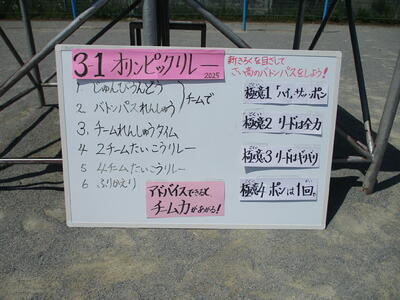 3-1 オリンピックリレー 2025
新きろくを目ざして
さい高のバトンパスをしよう!
1 じゅんびうんどう
2 バトンパスれんしゅう
チームで
3. チームれんしゅうタイム
4 2チームたいこうリレー
5 4チームたいこうリレー
6 ふりかえり
極意1 「ハイ、サッ、ポン
極意2 リードは全力
極意3 リードはギリギリ
極意4 ポンは1回。
アドバイスできると
チーム力があがる!